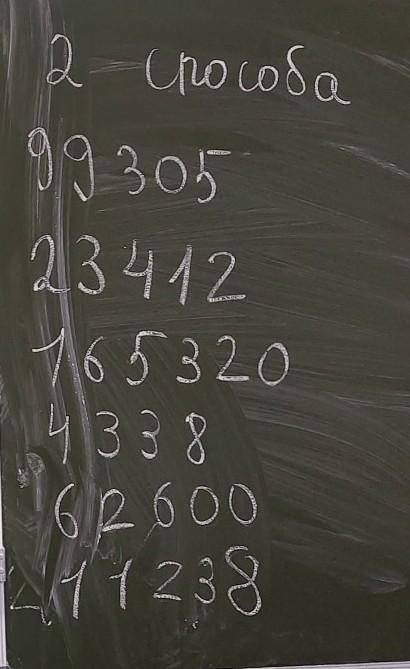 2 способа
99305
23412
165320
4338
62600
411238